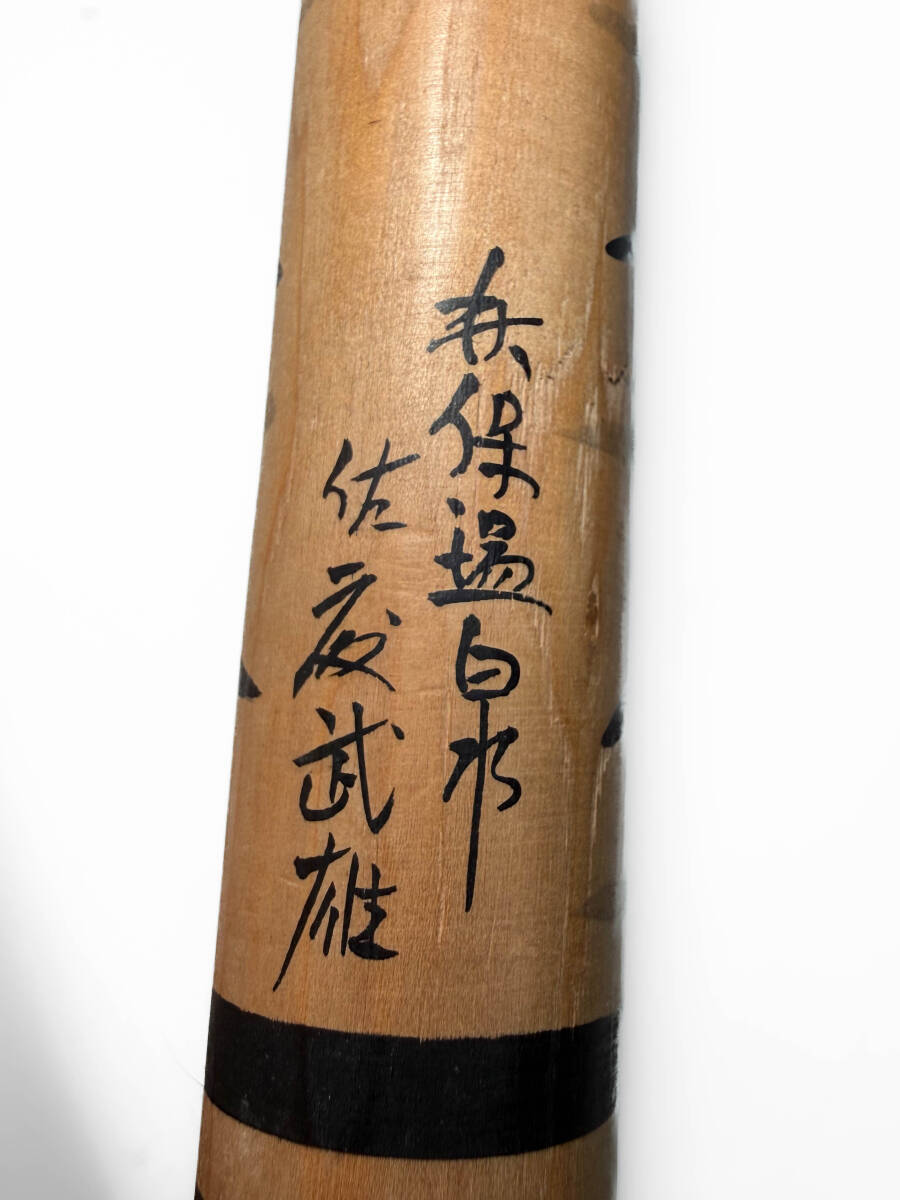 秋保温泉
佐藤武雄